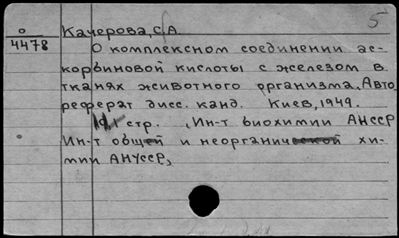 5
о
4478
Качерова, С.А.
О комплексном соединении ас-
корбиновой кислоты с железом в
тканях животного организма. Авто
реферат дисс. канд. Киев, 1949.
стр. (Ин-т биохимии АНССР
Ин-т общей и неорганической хи-
мии АНУССР)